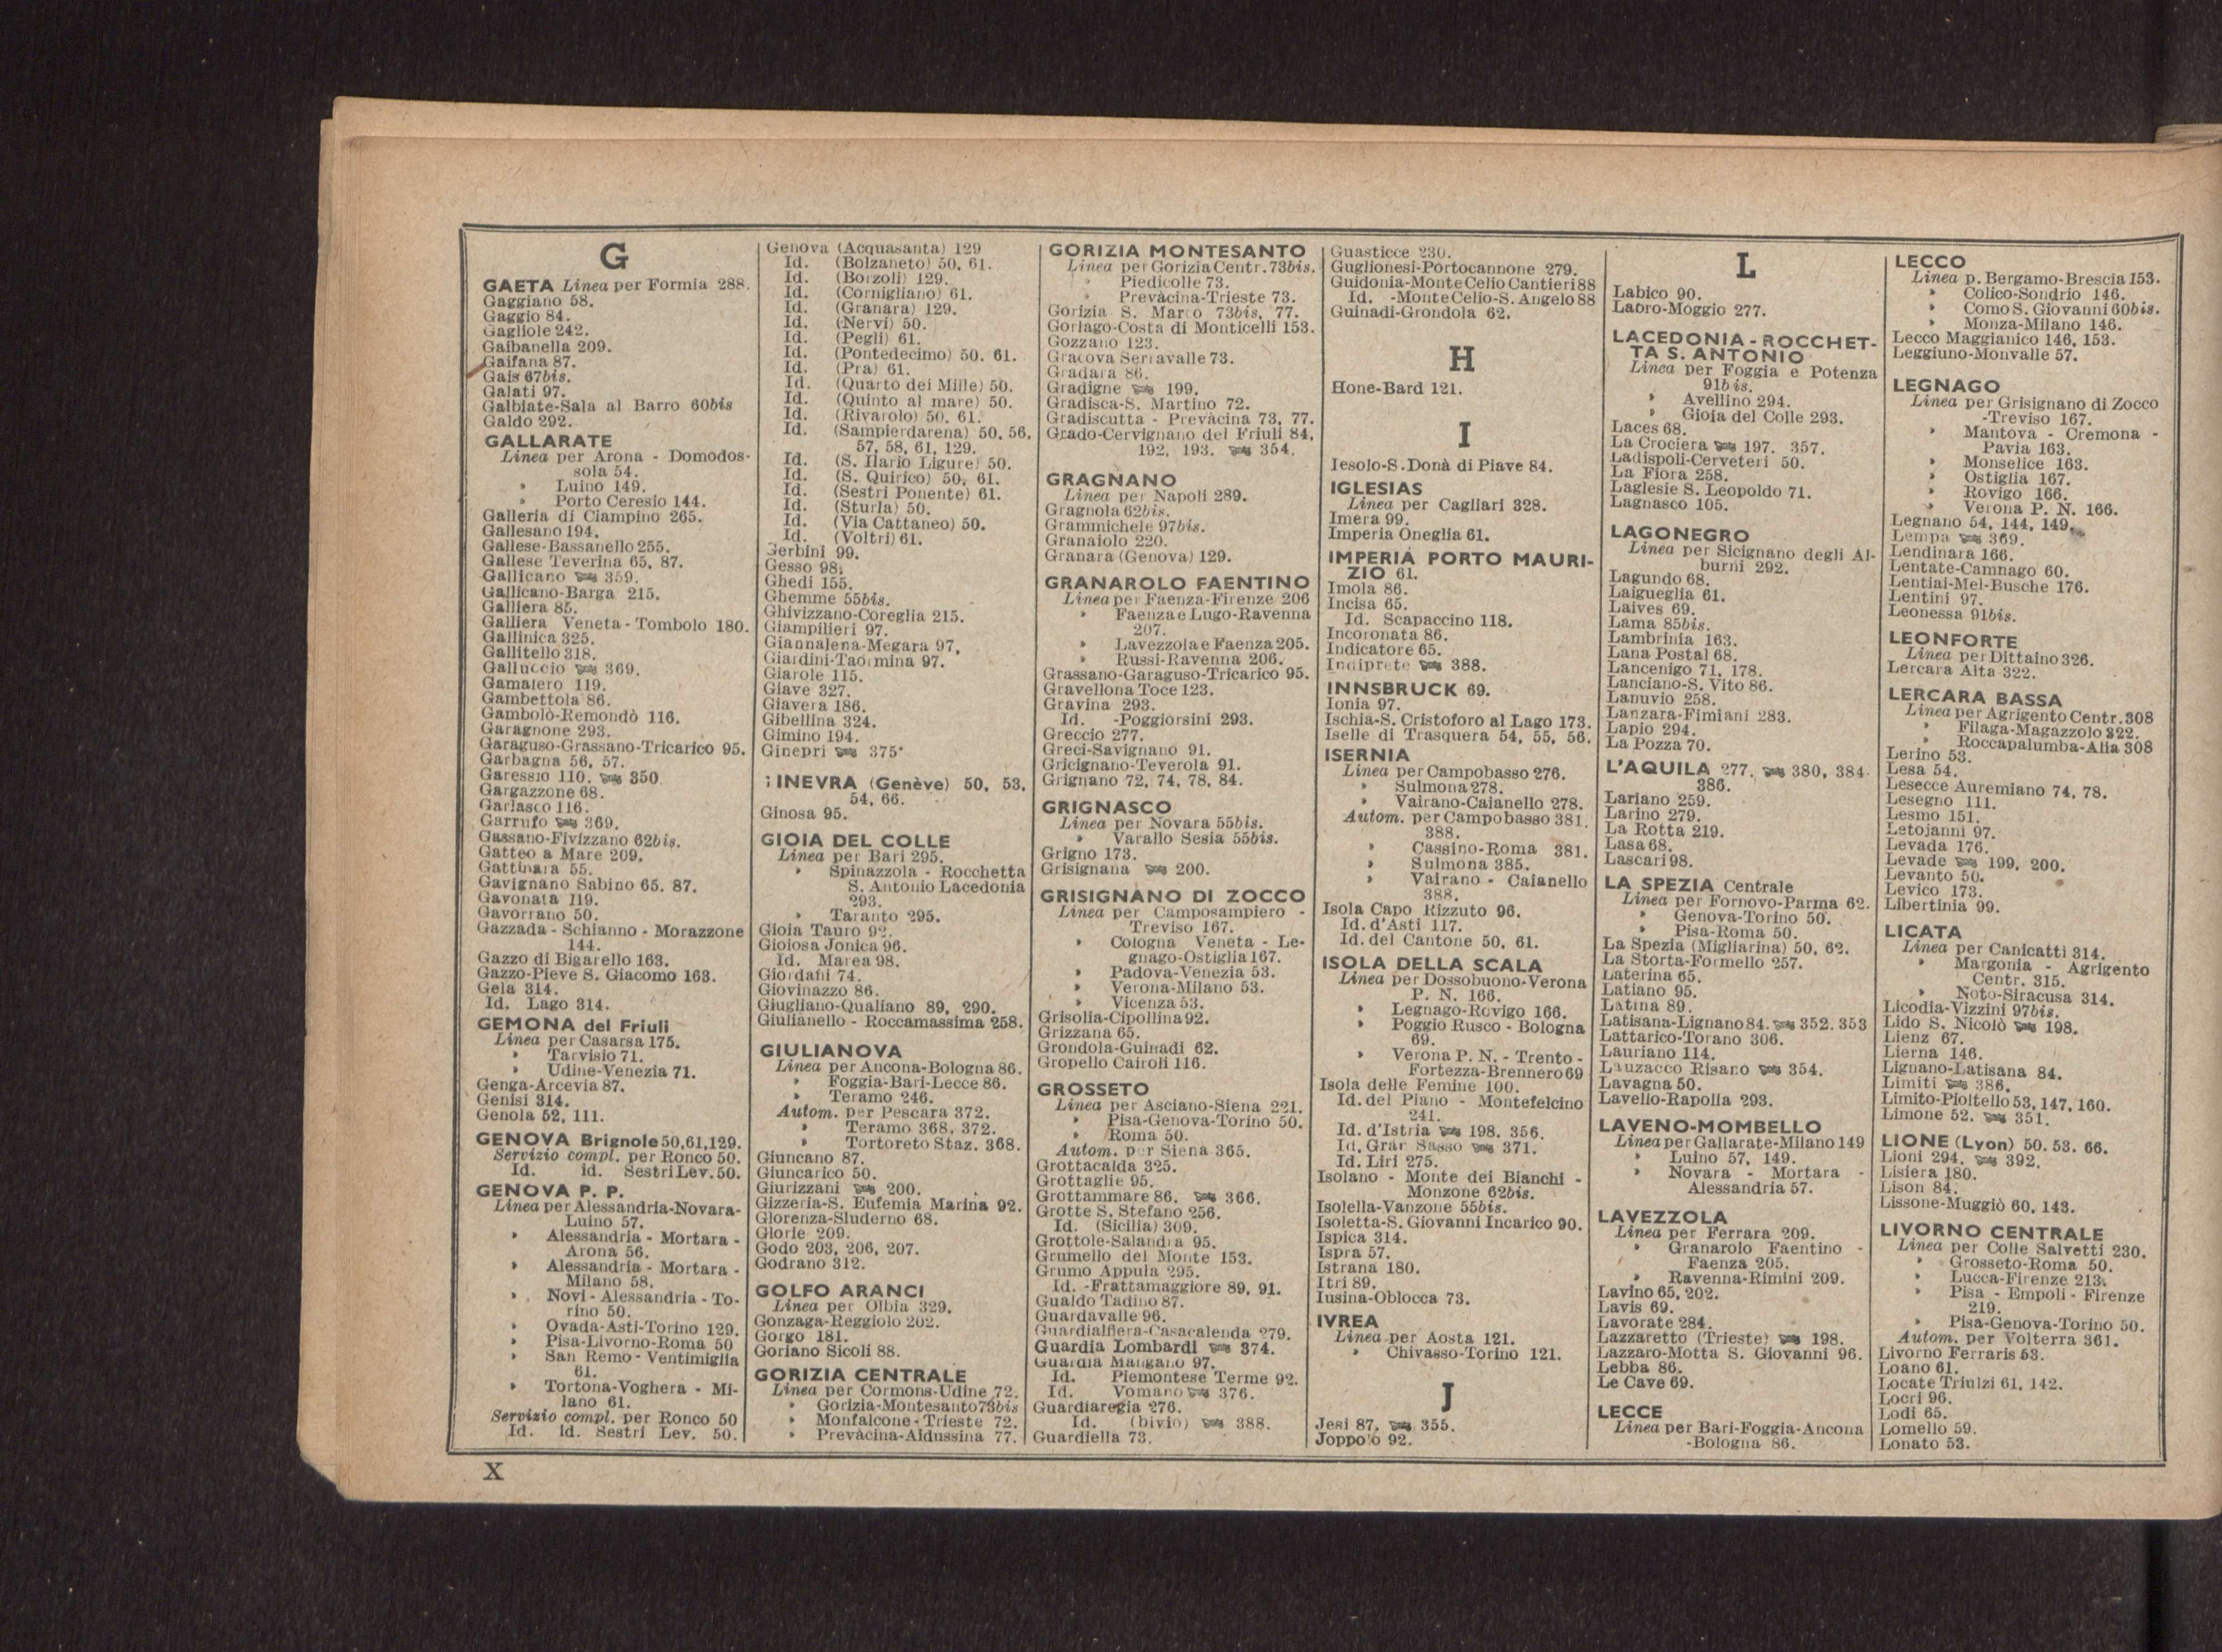 G
GAETA Linea per Formia 288.
Gaggiano 58.
Gaggio 84.
Gagliole 242.
Gaibanella 209.
Gaifana 87.
Gais 67bis.
Galati 97.
Galbiate-Sala al Barro 60bis
Galdo 292.
GALLARATE
Linea per Arona - Domodos-
sola 54.
» Luino 149.
» Porto Ceresio 144.
Galleria di Ciampino 265.
Gallesano 194.
Gallese-Bassanello 255.
Gallese Teverina 65, 87.
Gallicano 359.
Gallicano-Barga 215.
Galliera 85.
Galliera Veneta - Tombolo 180.
Gallinica 325.
Gallitello 318.
Galluccio 369.
Gamalero 119.
Gambettola 86.
Gambolò-Remondò 116.
Garagnone 293.
Garaguso-Grassano-Tricarico 95.
Garbagna 56, 57.
Garessio 110. 350
Gargazzone 68.
Garlasco 116.
Garrufo 369.
Gassano-Fivizzano 62bis.
Gatteo a Mare 209.
Gattinara 55.
Gavignano Sabino 65. 87.
Gavonata 119.
Gavorrano 50.
Gazzada - Schianno - Morazzone
144.
Gazzo di Bigarello 163.
Gazzo-Pieve S. Giacomo 163.
Gela 314.
Id. Lago 314.
GEMONA del Friuli
Linea per Casarsa 175.
» Tarvisio 71.
» Udine-Venezia 71.
Genga-Arcevia 87.
Genisi 314.
Genola 52, 111.
GENOVA Brignole 50,61,129.
Servizio compl. per Ronco 50.
Id. id. Sestri Lev. 50.
GENOVA P. P.
Linea per Alessandria-Novara-
Luino 57.
» Alessandria - Mortara -
Arona 56.
» Alessandria - Mortara -
Milano 58.
» Novi - Alessandria - To-
rino 50.
» Ovada-Asti-Torino 129.
» Pisa-Livorno-Roma 50
» San Remo - Ventimiglia
61.
» Tortona-Voghera - Mi-
lano 61.
Servizio compl. per Ronco 50
Id. id. Sestri Lev. 50.
Genova (Acquasanta) 129
Id. (Bolzaneto) 50, 61.
Id. (Borzoli) 129.
Id. (Cornigliano) 61.
Id. (Granara) 129.
Id. (Nervi) 50.
Id. (Pegli) 61.
Id. (Pontedecimo) 50. 61.
Id. (Pra) 61.
Id. (Quarto dei Mille) 50.
Id. (Quinto al mare) 50.
Id. (Rivarolo) 50. 61.
Id. (Sampierdarena) 50, 56,
57, 58, 61, 129.
Id. (S. Ilario Ligure) 50.
Id. (S. Quirico) 50, 61.
Id. (Sestri Ponente) 61.
Id. (Sturla) 50.
Id. (Via Cattaneo) 50.
Id. (Voltri) 61.
Gerbini 99.
Gesso 98.
Ghedi 155.
Ghemme 55bis.
Ghivizzano-Coreglia 215.
Giampilieri 97.
Giannalena-Megara 97,
Giardini-Taormina 97.
Giarole 115.
Giave 327.
Giavera 186.
Gibellina 324.
Gimino 194.
Ginepri 375
GINEVRA (Genève) 50, 53,
54, 66.
Ginosa 95.
GIOIA DEL COLLE
Linea per Bari 295.
» Spinazzola - Rocchetta
S. Antonio Lacedonia
293.
» Taranto 295.
Gioia Tauro 92.
Gioiosa Jonica 96.
Id. Marea 98.
Giordani 74.
Giovinazzo 86.
Giugliano-Qualiano 89, 290.
Giulianello - Roccamassima 258.
GIULIANOVA
Linea per Ancona-Bologna 86.
» Foggia-Bari-Lecce 86.
» Teramo 246.
Autom. per Pescara 372.
» Teramo 368, 372.
» Tortoreto Staz. 368.
Giuncano 87.
Giuncarico 50.
Giurizzani 200.
Gizzeria-S. Eufemia Marina 92.
Glorenza-Sluderno 68.
Glorie 209.
Godo 203, 206, 207.
Godrano 312.
GOLFO ARANCI
Linea per Olbia 329.
Gonzaga-Reggiolo 202.
Gorgo 181.
Goriano Sicoli 88.
GORIZIA CENTRALE
Linea per Cormons-Udine 72.
» Gorizia-Montesanto 73bis
» Monfalcone - Trieste 72.
» Prevàcina-Aidussina 77.
GORIZIA MONTESANTO
Linea per Gorizia Centr. 73bis.
» Piedicolle 73.
» Prevàcina-Trieste 73.
Gorizia S. Marco 73bis, 77.
Gorlago-Costa di Monticelli 153.
Gozzano 123.
Gracova Serravalle 73.
Gradara 86.
Gradigne 199.
Gradisca-S. Martino 72.
Gradiscutta - Prevàcina 73, 77.
Grado-Cervignano del Friuli 84,
192, 193. 354.
GRAGNANO
Linea per Napoli 289.
Gragnola 62bis.
Grammichele 97bis.
Granaiolo 220.
Granara (Genova) 129.
GRANAROLO FAENTINO
Linea per Faenza-Firenze 206
» Faenza e Lugo-Ravenna
207.
» Lavezzola e Faenza 205.
» Russi-Ravenna 206.
Grassano-Garaguso-Tricarico 95.
Gravellona Toce 123.
Gravina 293.
Id. -Poggiorsini 293.
Greccio 277.
Greci-Savignano 91.
Gricignano-Teverola 91.
Grignano 72, 74, 78, 84.
GRIGNASCO
Linea per Novara 55bis.
» Varallo Sesia 55bis.
Grigno 173.
Grisignana 200.
GRISIGNANO DI ZOCCO
Linea per Camposampiero -
Treviso 167.
» Cologna Veneta - Le-
gnago-Ostiglia 167.
» Padova-Venezia 53.
» Verona-Milano 53.
» Vicenza 53.
Grisolia-Cipollina 92.
Grizzana 65.
Grondola-Guinadi 62.
Gropello Cairoli 116.
GROSSETO
Linea per Asciano-Siena 221.
» Pisa-Genova-Torino 50.
» Roma 50.
Autom. per Siena 365.
Grottacalda 325.
Grottaglie 95.
Grottammare 86. 366.
Grotte S. Stefano 256.
Id. (Sicilia) 309.
Grottole-Salandra 95.
Grumello del Monte 153.
Grumo Appula 295.
Id. -Frattamaggiore 89, 91.
Gualdo Tadino 87.
Guardavalle 96.
Guardialfiera-Casacalenda 279.
Guardia Lombardi 374.
Guardia Mangano 97.
Id. Piemontese Terme 92.
Id. Vomano 376.
Guardiaregia 276.
Id. (bivio) 388.
Guardiella 73.
Guasticce 230.
Guglionesi-Portocannone 279.
Guidonia-Monte Celio Cantieri 88
Id. -Monte Celio-S. Angelo 88
Guinadi-Grondola 62.
H
Hone-Bard 121.
I
Iesolo-S. Donà di Piave 84.
IGLESIAS
Linea per Cagliari 328.
Imera 99.
Imperia Oneglia 61.
IMPERIA PORTO MAURI-
ZIO 61.
Imola 86.
Incisa 65.
Id. Scapaccino 118.
Incoronata 86.
Indicatore 65.
Indiprete 388.
INNSBRUCK 69.
Ionia 97.
Ischia-S. Cristoforo al Lago 173.
Iselle di Trasquera 54, 55, 56.
ISERNIA
Linea per Campobasso 276.
» Sulmona 278.
» Vairano-Caianello 278.
Autom. per Campobasso 381.
388.
» Cassino-Roma 381.
» Sulmona 385.
» Vairano - Caianello
388.
Isola Capo Rizzuto 96.
Id. d'Asti 117.
Id. del Cantone 50, 61.
ISOLA DELLA SCALA
Linea per Dossobuono-Verona
P. N. 166.
» Legnago-Rovigo 166.
» Poggio Rusco - Bologna
69.
» Verona P. N. - Trento -
Fortezza-Brennero 69
Isola delle Femine 100.
Id. del Piano - Montefelcino
241.
Id. d'Istria 198. 356.
Id. Gran Sasso 371.
Id. Liri 275.
Isolano - Monte dei Bianchi -
Monzone 62bis.
Isolella-Vanzone 55bis.
Isoletta-S. Giovanni Incarico 90.
Ispica 314.
Ispra 57.
Istrana 180.
Itri 89.
Iusina-Oblocca 73.
IVREA
Linea per Aosta 121.
» Chivasso-Torino 121.
J
Jesi 87, 355.
Joppolo 92.
L
Labico 90.
Labro-Moggio 277.
LACEDONIA - ROCCHET-
TA S. ANTONIO
Linea per Foggia e Potenza
91bis.
» Avellino 294.
» Gioia del Colle 293.
Laces 68.
La Crociera 197. 357.
Ladispoli-Cerveteri 50.
La Fiora 258.
Laglesie S. Leopoldo 71.
Lagnasco 105.
LAGONEGRO
Linea per Sicignano degli Al-
burni 292.
Lagundo 68.
Laigueglia 61.
Laives 69.
Lama 85bis.
Lambrinia 163.
Lana Postal 68.
Lancenigo 71, 178.
Lanciano-S. Vito 86.
Lanuvio 258.
Lanzara-Fimiani 283.
Lapio 294.
La Pozza 70.
L'AQUILA 277. 380, 384
386.
Lariano 259.
Larino 279.
La Rotta 219.
Lasa 68.
Lascari 98.
LA SPEZIA Centrale
Linea per Fornovo-Parma 62.
» Genova-Torino 50.
» Pisa-Roma 50.
La Spezia (Migliarina) 50, 62.
La Storta-Formello 257.
Laterina 65.
Latiano 95.
Latina 89.
Latisana-Lignano 84. 352. 353
Lattarico-Torano 306.
Lauriano 114.
Lauzacco Risano 354.
Lavagna 50.
Lavello-Rapolla 293.
LAVENO-MOMBELLO
Linea per Gallarate-Milano 149
» Luino 57, 149.
» Novara - Mortara -
Alessandria 57.
LAVEZZOLA
Linea per Ferrara 209.
» Granarolo Faentino -
Faenza 205.
» Ravenna-Rimini 209.
Lavino 65, 202.
Lavis 69.
Lavorate 284.
Lazzaretto (Trieste) 198.
Lazzaro-Motta S. Giovanni 96.
Lebba 86.
Le Cave 69.
LECCE
Linea per Bari-Foggia-Ancona
-Bologna 86.
LECCO
Linea p. Bergamo-Brescia 153.
» Colico-Sondrio 146.
» Como S. Giovanni 60bis.
» Monza-Milano 146.
Lecco Maggianico 146, 153.
Leggiuno-Monvalle 57.
LEGNAGO
Linea per Grisignano di Zocco
-Treviso 167.
» Mantova - Cremona -
Pavia 163.
» Monselice 163.
» Ostiglia 167.
» Rovigo 166.
» Verona P. N. 166.
Legnano 54, 144, 149.
Lempa 369.
Lendinara 166.
Lentate-Camnago 60.
Lentiai-Mel-Busche 176.
Lentini 97.
Leonessa 91bis.
LEONFORTE
Linea per Dittaino 326.
Lercara Alta 322.
LERCARA BASSA
Linea per Agrigento Centr. 308
» Filaga-Magazzolo 322.
» Roccapalumba-Alia 308
Lerino 53.
Lesa 54.
Lesecce Auremiano 74, 78.
Lesegno 111.
Lesmo 151.
Letojanni 97.
Levada 176.
Levade 199, 200.
Levanto 50.
Levico 173.
Libertinia 99.
LICATA
Linea per Canicatti 314.
» Margonia - Agrigento
Centr. 315.
» Noto-Siracusa 314.
Licodia-Vizzini 97bis.
Lido S. Nicolò 198.
Lienz 67.
Lierna 146.
Lignano-Latisana 84.
Limiti 386.
Limito-Pioltello 53, 147, 160.
Limone 52. 351.
LIONE (Lyon) 50. 53. 66.
Lioni 294. 392.
Lisiera 180.
Lison 84.
Lissone-Muggiò 60, 143.
LIVORNO CENTRALE
Linea per Colle Salvetti 230.
» Grosseto-Roma 50.
» Lucca-Firenze 213.
» Pisa - Empoli - Firenze
219.
» Pisa-Genova-Torino 50.
Autom. per Volterra 361.
Livorno Ferraris 53.
Loano 61.
Locate Triulzi 61, 142.
Locri 96.
Lodi 65.
Lomello 59.
Lonato 53.
X